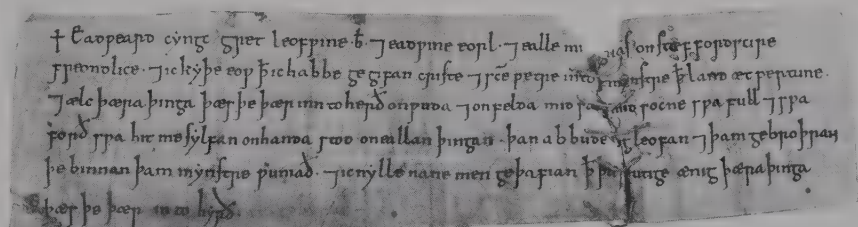 ✝ Eadƿeard cyngc gret leofƿine b̄. ⁊ eadƿine eorl. ⁊ ealle mi nas on stefford scire
freondlice. ⁊ ic kyþe eoƿ ꝥ ic habbe gegyfan criste ⁊ sc̄e petre into mynstre ꝥ land æt pertune.
⁊ ælc þæra þinga þæs þe þær inn to herð on ƿuda ⁊ on felda mid socne sƿa full ⁊ sƿa
forð sƿa hit me sylfan on handa stod on eallan þingan. þan abbude leofan ⁊ þam gebroþran
þe binnan þam mynstre ƿuniað. ⁊ ic nylle nane men geþafian ꝥ ænig þæra þinga
þæs þe þær into hyrð.